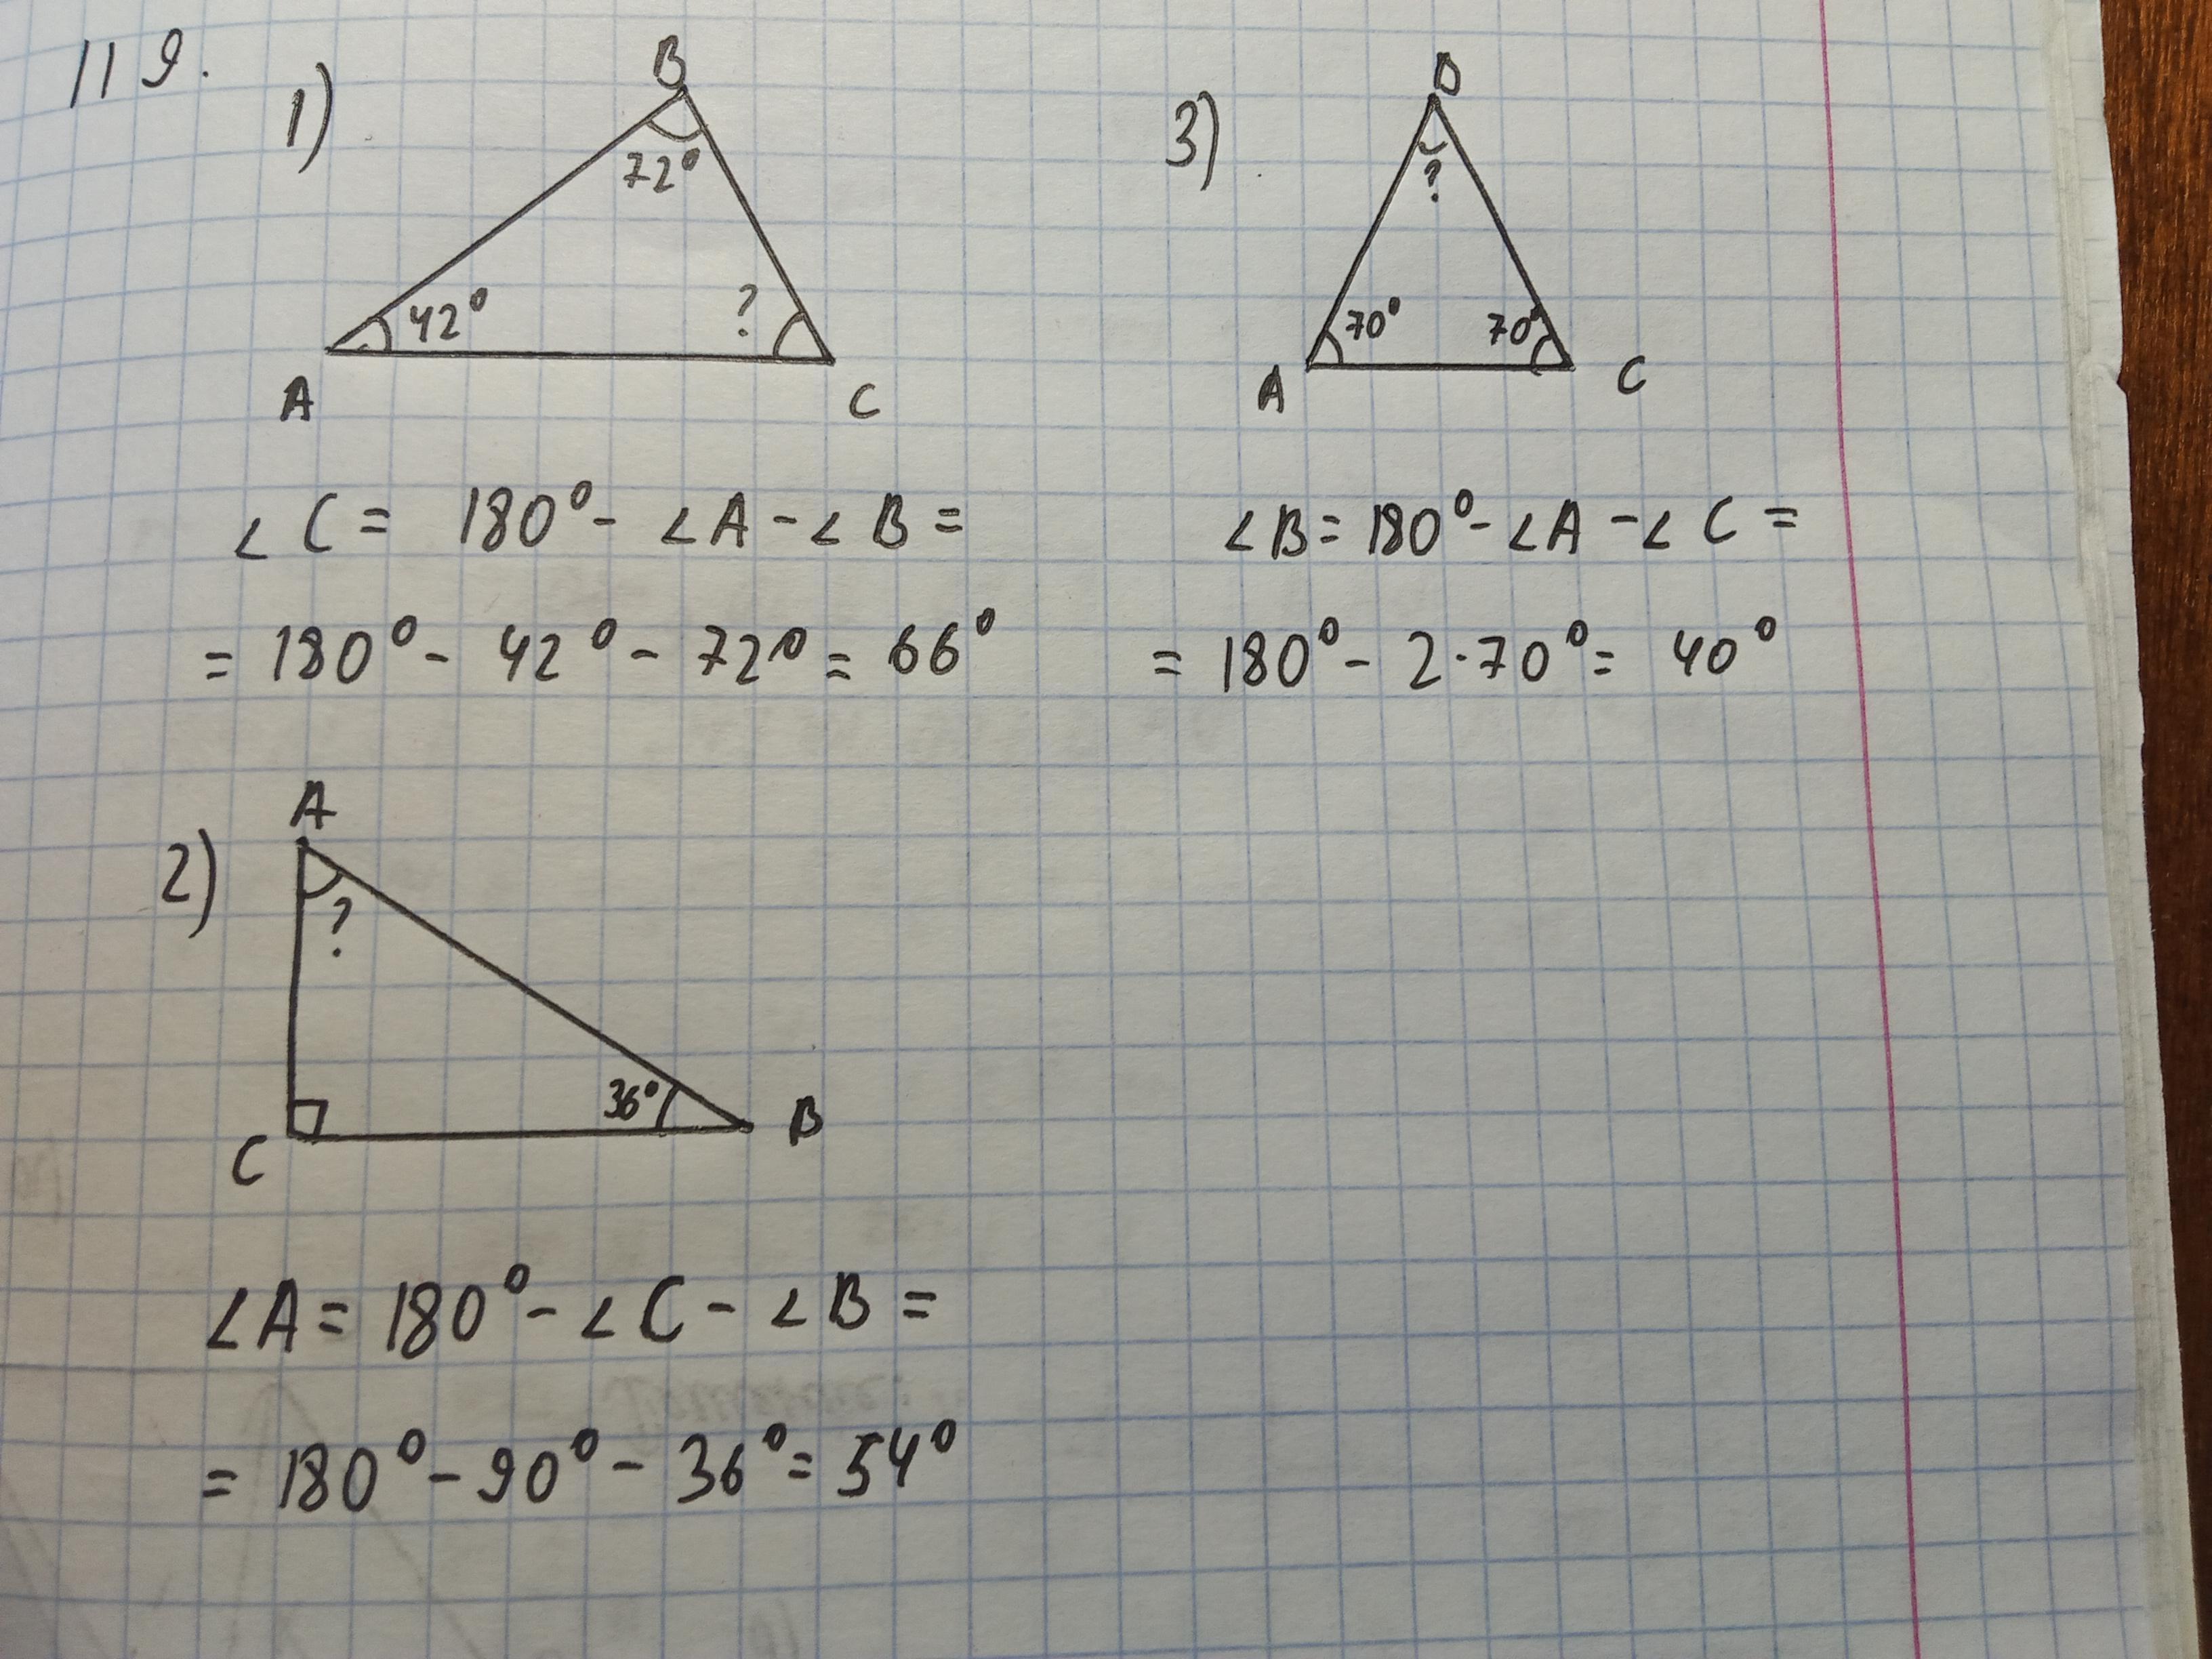 119.
1)
B
72°
42°
?
A
C
∠C = 180° - ∠A - ∠B =
= 180° - 42° - 72° = 66°
3)
B
?
70°
70°
A
C
∠B = 180° - ∠A - ∠C =
= 180° - 2·70° = 40°
2)
A
?
36°
C
B
∠A = 180° - ∠C - ∠B =
= 180° - 90° - 36° = 54°